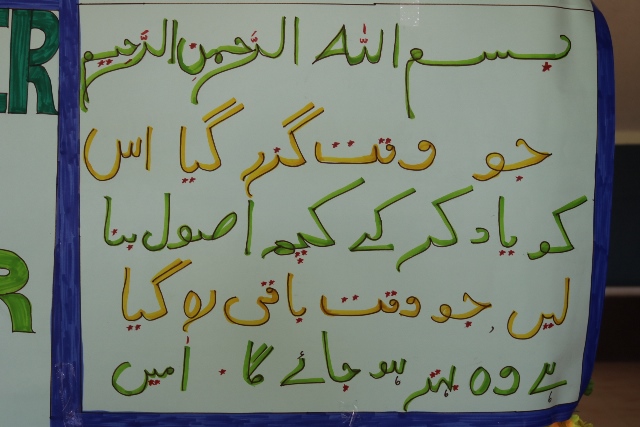 ER
R
بسم اللہ الرحمن الرحیم
جو وقت گزر گیا اس
کو یاد کر کے کچھ اصول بنا
لیں، جو وقت باقی رہ گیا
ہے وہ بہتر ہو جائے گا۔ اٰمین